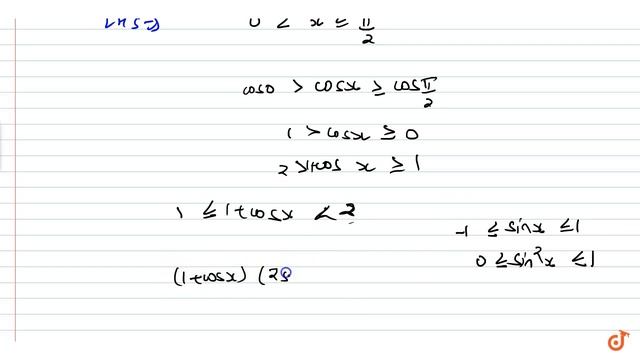 LHS ⇒ 0 < x ≤ π/2
cos0 > cosx ≥ cos π/2
1 > cosx ≥ 0
2 > 1+cos x ≥ 1
1 ≤ 1+cosx < 2
-1 ≤ sinx ≤ 1
0 ≤ sin²x ≤ 1
(1+cosx) (2s